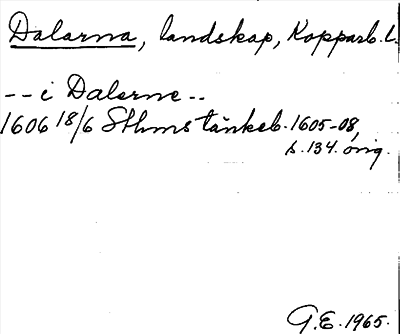 Dalarna, landskap, Kopparb. L.
-- i Dalerne --
1606 18/6 Sthms tänkeb. 1605-08,
s. 134. orig.
G.E. 1965.